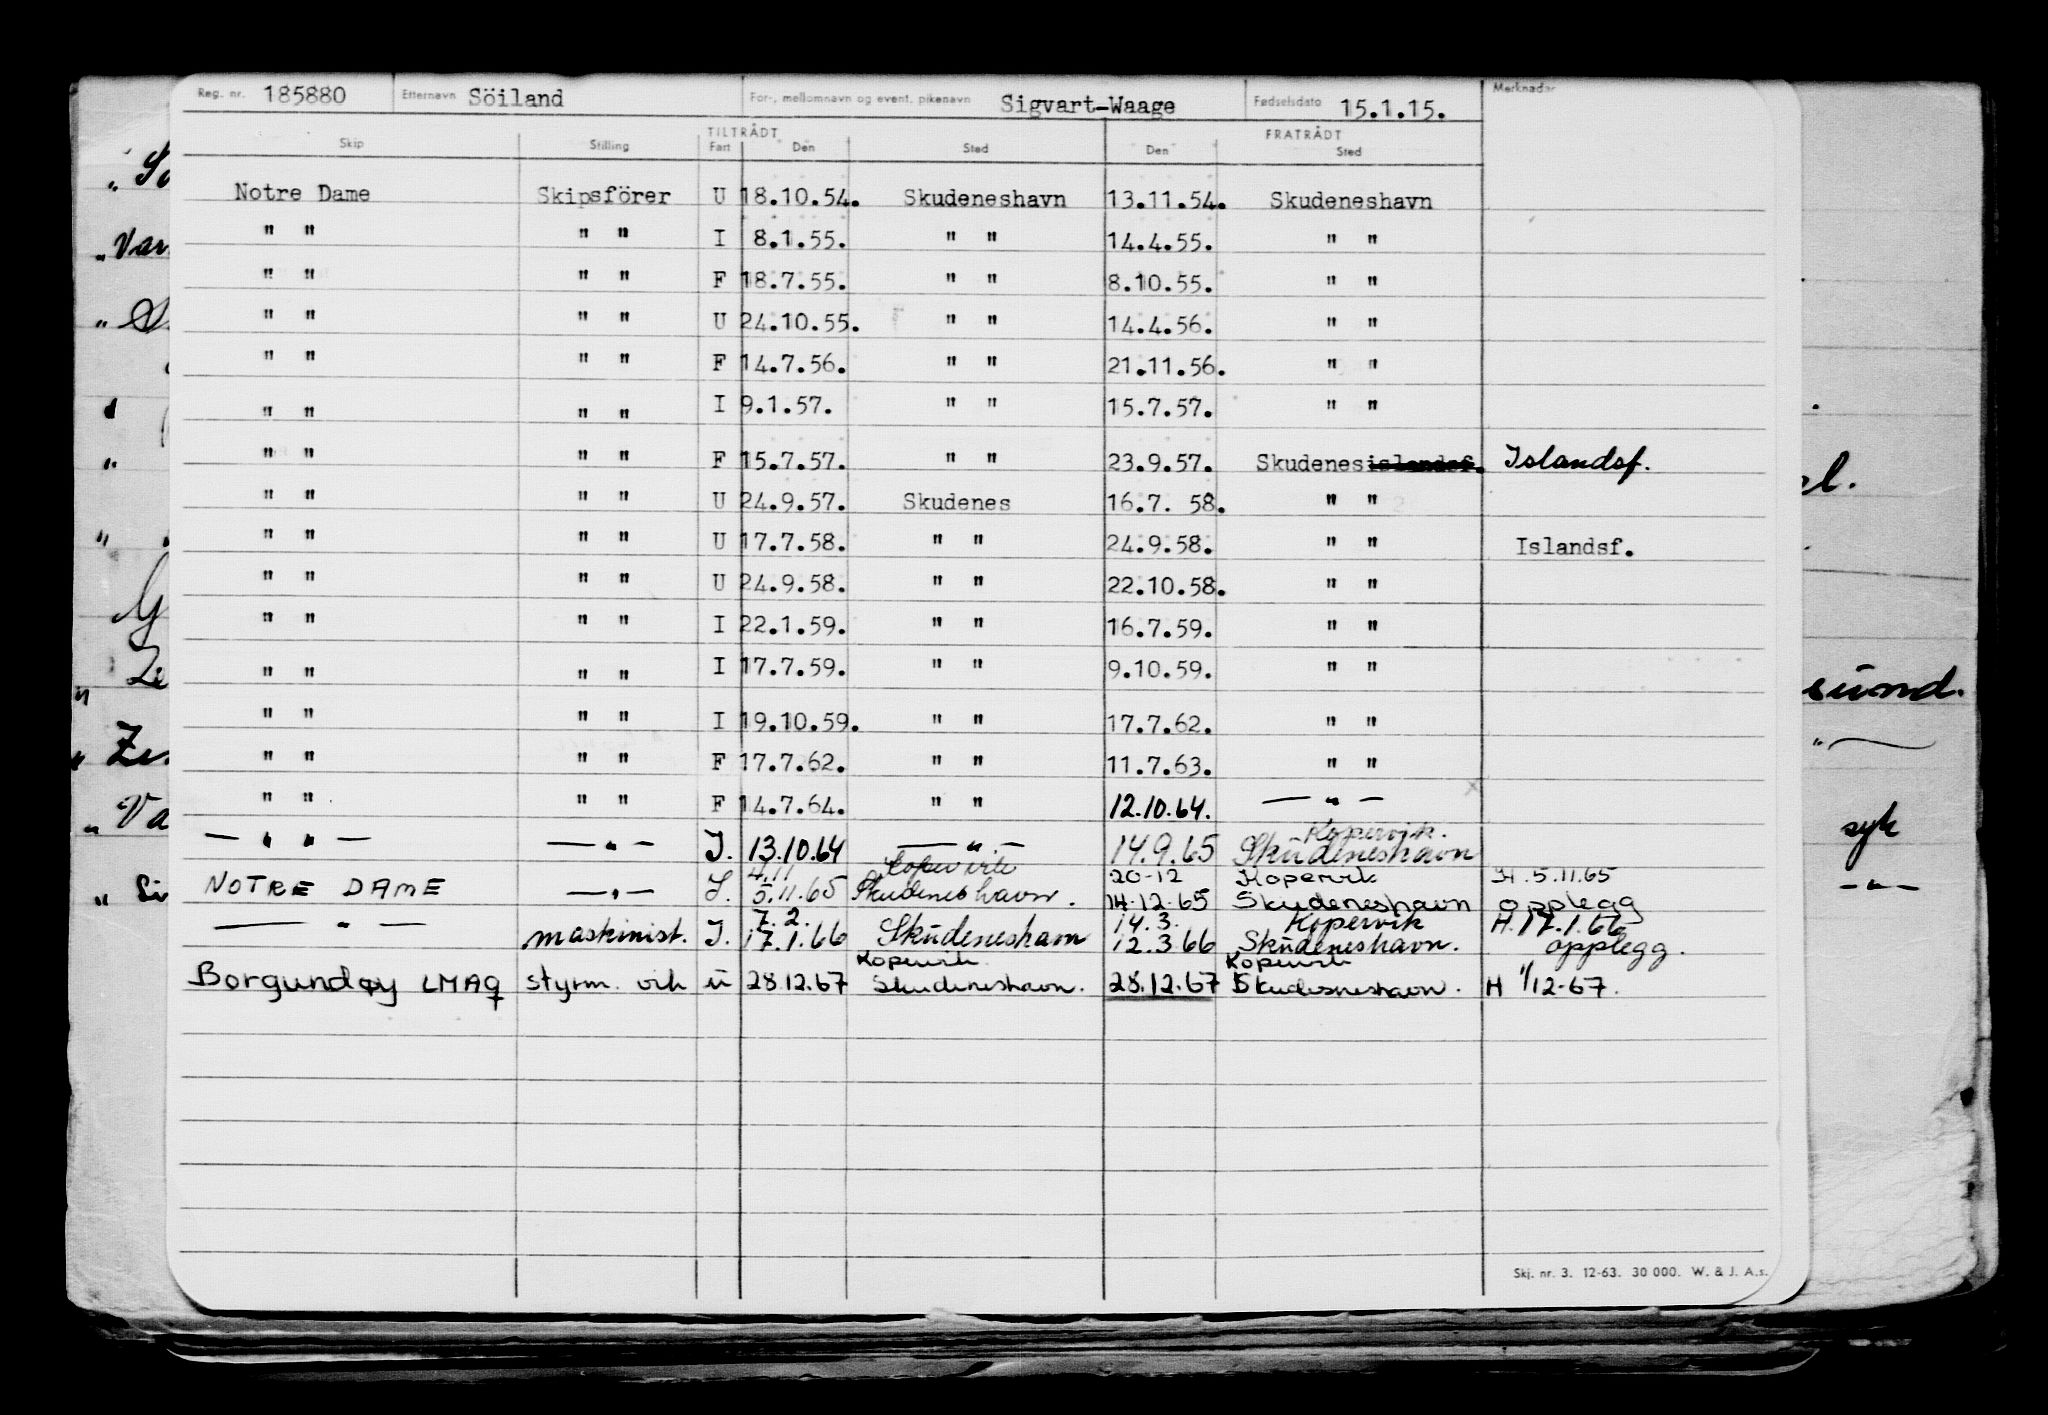 Reg. nr. 185880 Etternavn Söiland For-, mellomnavn og event. pikenavn Sigvart-Waage Fødselsdato 15.1.15. Merknader
TILTRÅDT FRATRÅDT
Skip Stilling Fart Den Sted Den Sted
Notre Dame Skipsförer U 18.10.54. Skudeneshavn 13.11.54. Skudeneshavn
" " " " I 8.1.55. " " 14.4.55. " "
" " " " F 18.7.55. " " 8.10.55. " "
" " " " U 24.10.55. " " 14.4.56. " "
" " " " F 14.7.56. " " 21.11.56. " "
" " " " I 9.1.57. " " 15.7.57. " "
" " " " F 15.7.57. " " 23.9.57. Skudenesislandsf. Islandsf.
" " " " U 24.9.57. Skudenes 16.7. 58. " "
" " " " U 17.7.58. " " 24.9.58. " " Islandsf.
" " " " U 24.9.58. " " 22.10.58. " "
" " " " I 22.1.59. " " 16.7.59. " "
" " " " I 17.7.59. " " 9.10.59. " "
" " " " I 19.10.59. " " 17.7.62. " "
" " " " F 17.7.62. " " 11.7.63. " "
" " " " F 14.7.64. " " 12.10.64. — " —
Kopervik.
— " " — — " — I. 13.10.64 — " — 14.9.65 Skudeneshavn
4.11 Kopervik 20-12 Kopervik H. 5.11.65
NOTRE DAME — " — I. 5.11.65 Skudeneshavn. 14.12.65 Skudeneshavn opplegg
7.2. 14.3. Kopervik H. 17.1.66
— " — maskinist. I. 17.1.66 Skudeneshavn 12.3.66 Skudeneshavn. opplegg.
Kopervik Kopervik
Borgundøy LMAQ styrm. vik u 28.12.67 Skudeneshavn. 28.12.67 Skudesneshavn. H 1/12-67.
Skj. nr. 3. 12-63. 30 000. W. & J. A.s.
sund.
syk
— " —